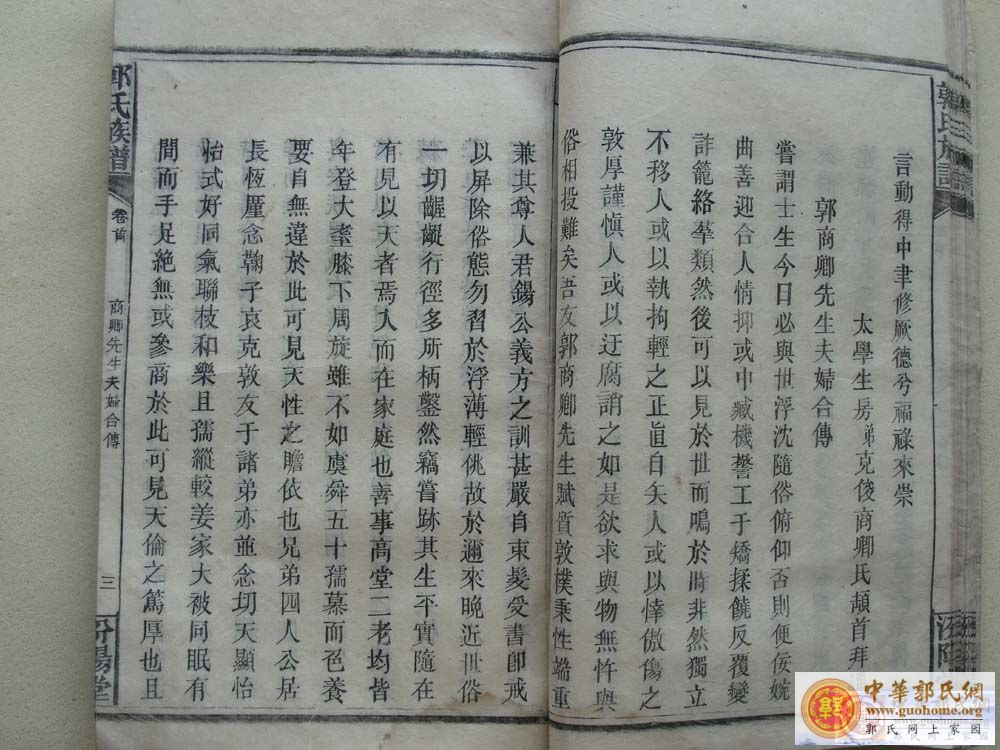 言動得中聿修厥德兮福祿來崇
太學生房弟克俊商卿氏頓首拜
郭商卿先生夫婦合傳
嘗謂士生今日必與世浮沈隨俗俯仰否則便佞婉
曲善迎合人情抑或中藏機警工于矯揉饒反覆變
詐籠絡羣類然後可以見於世而鳴於時非然獨立
不移人或以執拘輕之正直自矢人或以悻傲傷之
敦厚謹慎人或以迂腐誚之如是欲求與物無忤與
俗相投難矣吾友郭商卿先生賦質敦樸秉性端重
兼其尊人君錫公義方之訓甚嚴自束髮受書即戒
以屏除俗態勿習於浮薄輕佻故於邇來晚近世俗
一切齷齪行徑多所柄鑿然竊嘗跡其生平實隨在
有見以天者焉入而在家庭也善事高堂二老均皆
年登大耋膝下周旋雖不如虞舜五十孺慕而色養
要自無違於此可見天性之瞻依也兄弟四人公居
長恆厪念鞠子哀克敦友于諸弟亦並念切天顯怡
怡式好同氣聯枝和樂且孺縱較姜家大被同眠有
間而手足絶無或參商於此可見天倫之篤厚也且
郭氏族譜
卷首
商卿先生夫婦合傳
三
汾陽堂
郭氏族譜
中華郭氏網
www.guohome.org
郭氏网上家园